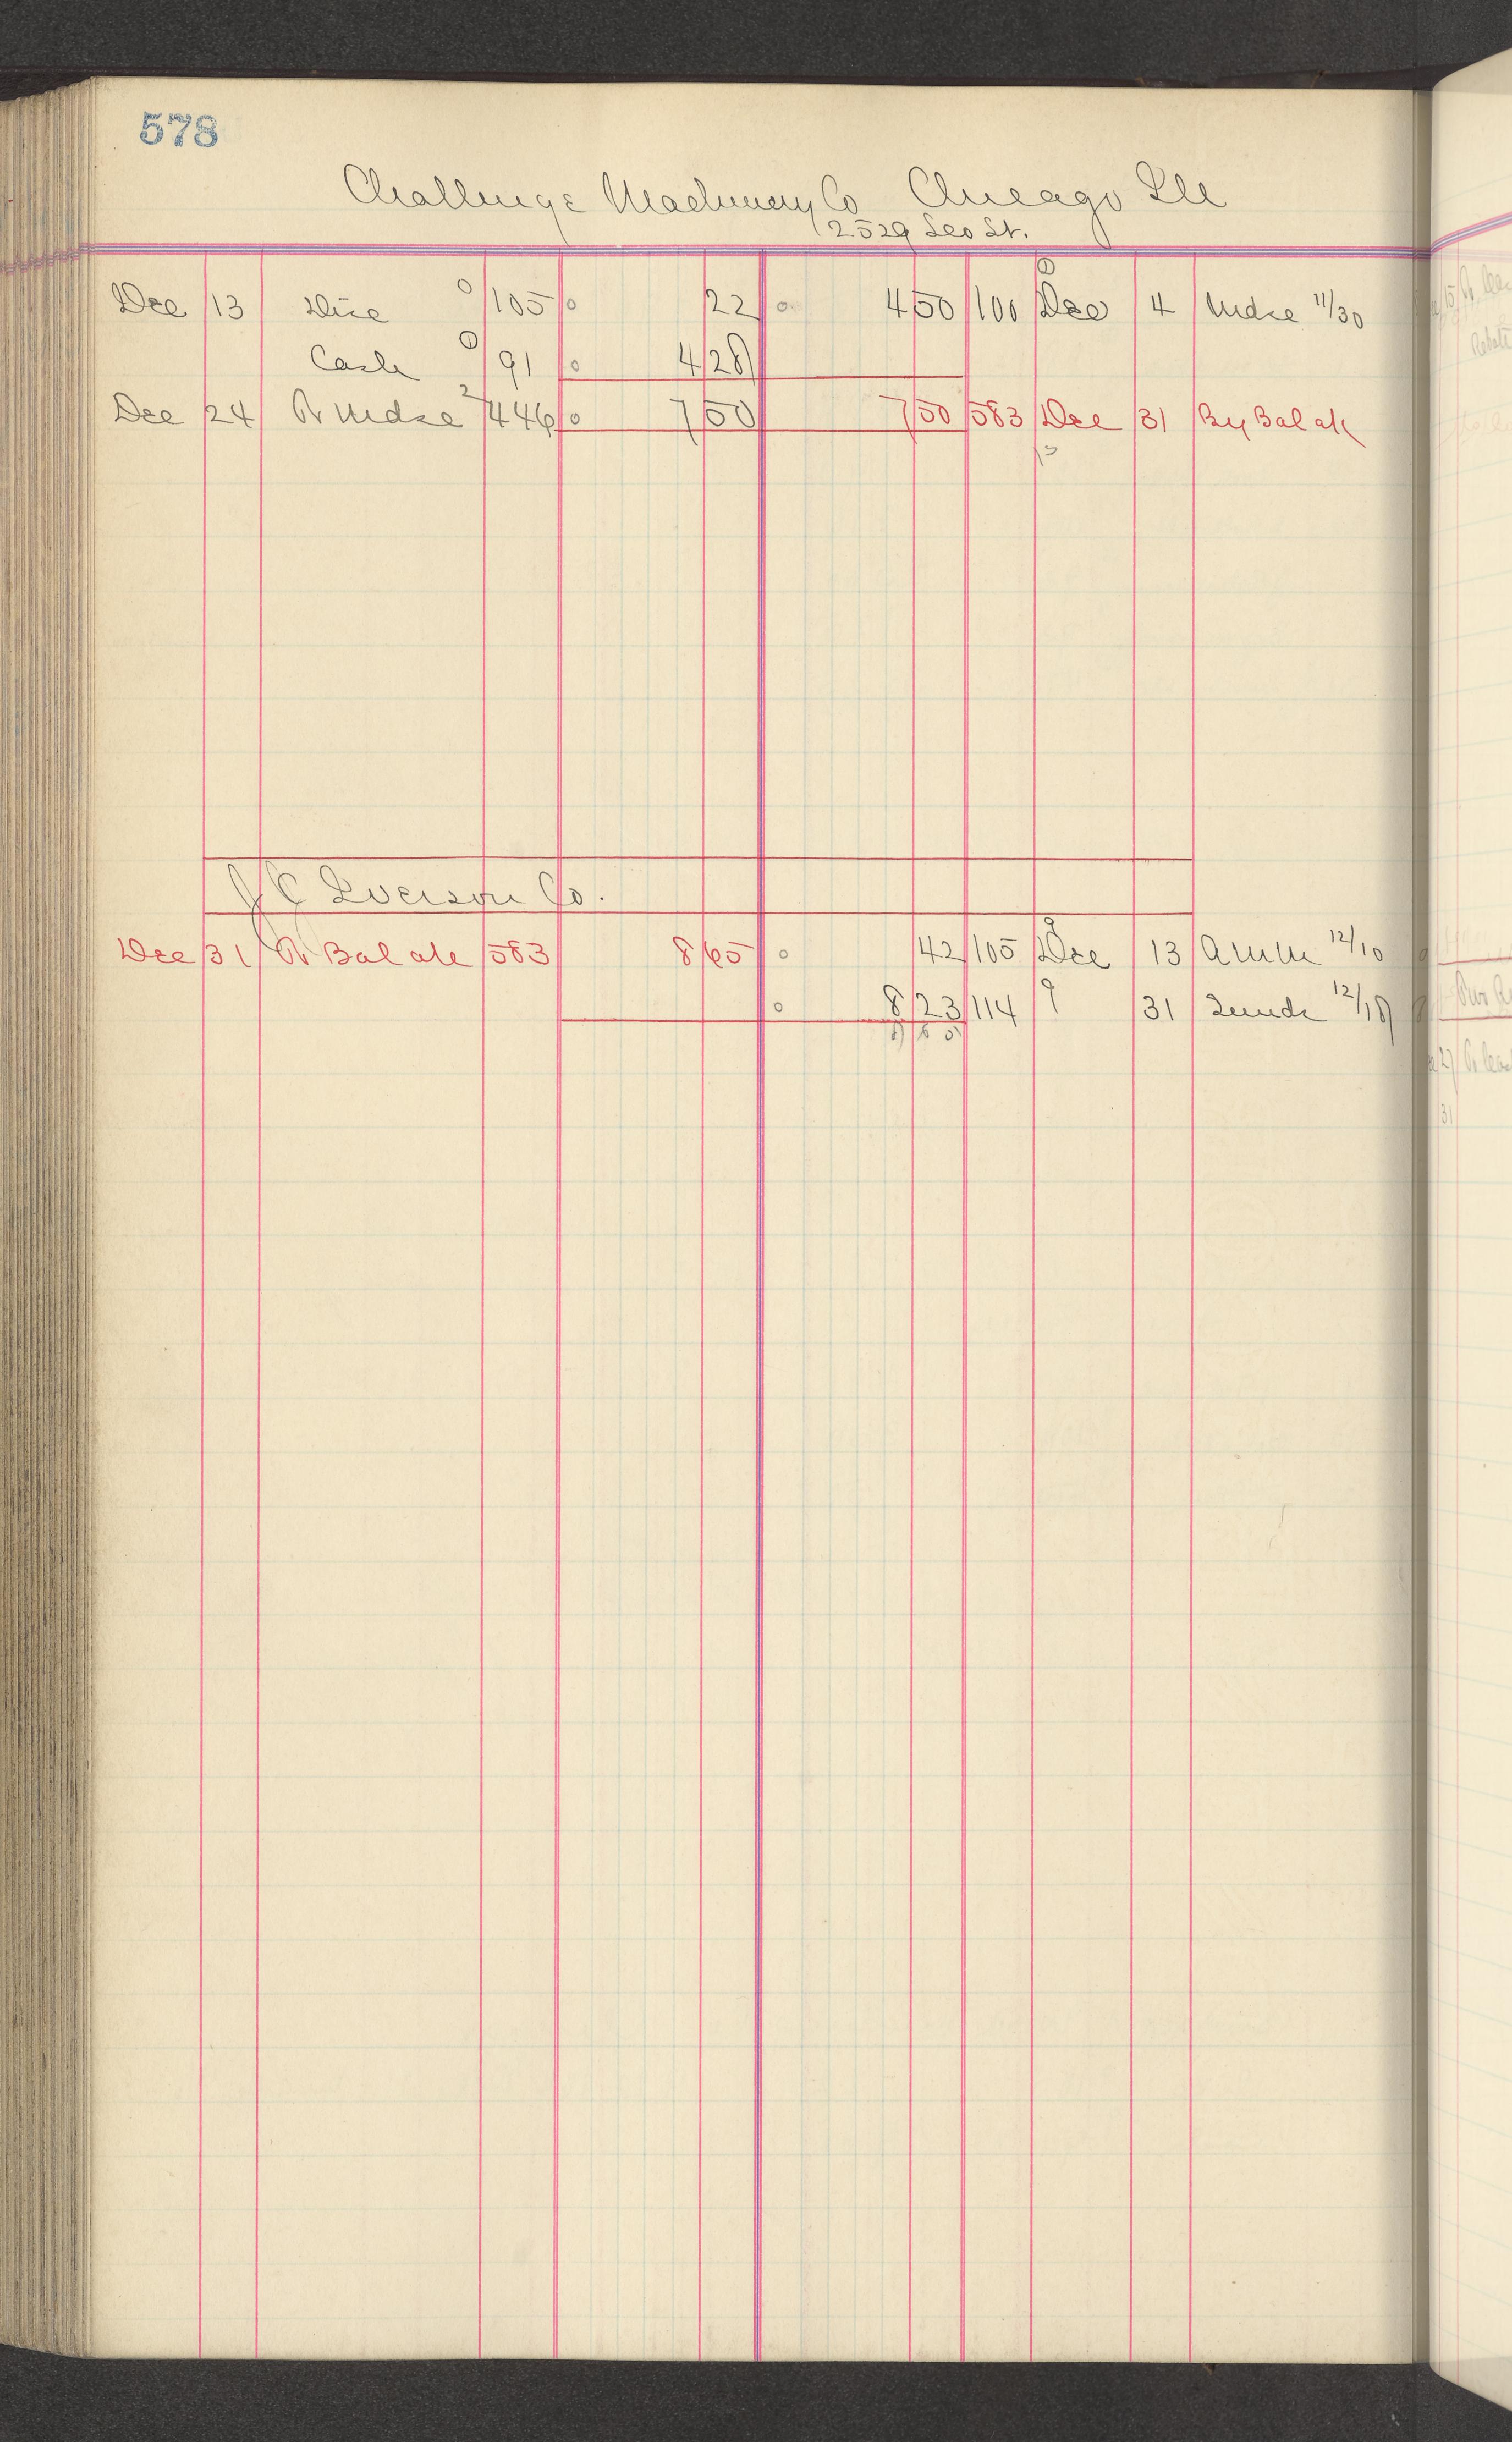 578
Challenge Machinery Co Chicago Ill
2529 Leo St.
Dec 13 Disc 0 105 0 22 0 4 50 100 Dec 4 Mdse 11/30
Cash 0 91 0 4 28
Dec 24 To Mdse 2 446 0 7 50 7 50 583 Dec 31 By Bal a/c
J C Iverson Co.
Dec 31 To Bal a/c 583 8 65 0 42 105 9 Dec 13 12/10
0 8 23 114 9 31 12/18
8 65